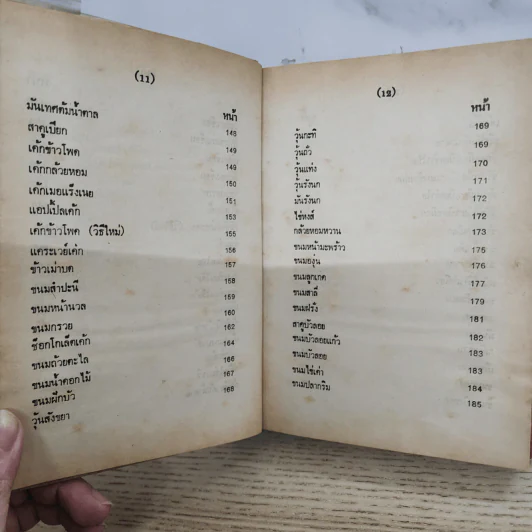 (11)
หน้า
มันเทศต้มน้ำตาล 148
สาคูเปียก 149
เค้กข้าวโพด 149
เค้กกล้วยหอม 150
เค้กเมอแร็งเนย 151
แอปเปิลเค้ก 153
เค้กข้าวโพด (วิธีใหม่) 155
แคระเวย์เค้ก 156
ข้าวเม่าบด 157
ขนมสำปะนี 158
ขนมหน้านวล 159
ขนมกรวย 160
ช๊อกโกเล็ตเค้ก 162
ขนมถ้วยตะไล 164
ขนมน้ำดอกไม้ 166
ขนมฝักบัว 167
วุ้นสังขยา 168
(12)
หน้า
วุ้นกะทิ 169
วุ้นถั่ว 169
วุ้นแท่ง 170
วุ้นรังนก 171
มันรังนก 172
ไข่หงส์ 172
กล้วยหอมหวาน 173
ขนมหน้ามะพร้าว 175
ขนมองุ่น 176
ขนมลูกเกด 177
ขนมสาลี่ 179
ขนมฝรั่ง 181
สาคูบัวลอย 182
ขนมบัวลอยแก้ว 183
ขนมบัวลอย 183
ขนมไข่เต่า 184
ขนมปลากริม 185